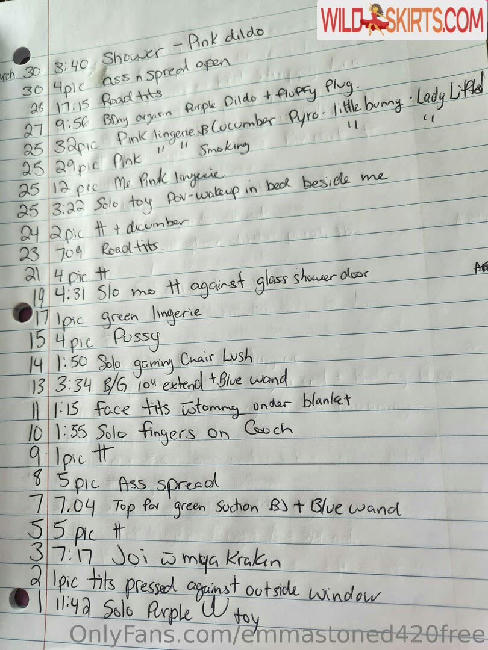 WILDSKIRTS.COM
30 8:40 Shower - Pink dildo
30 4pic ass n spread open
28 17:15 Road tits
27 9:56 orgasm Purple Dildo + Fluffy Plug
25 38pic Pink lingerie Cucumber Pyro. little bunny. Lady
25 29pic Pink " " Smoking " "
25 12 pic Me Pink lingerie
25 3:22 Solo toy Pov-wakeup in bed beside me
24 2pic tt +
23 709 Road tits
21 4 pic tt
19 4:31 Slo mo tt against glass shower door
17 1pic green lingerie
15 4pic Pussy
14 1:50 Solo gaming Chair Lush
13 3:34 B/G extend + Blue wand
11 1:15 Face tits under blanket
10 1:55 Solo fingers on Couch
9 1pic tt
8 5 pic Ass spread
7 7.04 Top for green suction BJ + Blue wand
5 5 pic tt
3 7:17 Joi w
2 1pic tits pressed against outside window
1 11:42 Solo Purple toy
OnlyFans.com/emmastoned420free